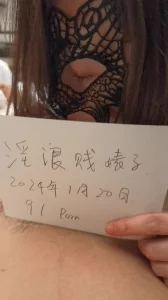 淫浪贱婊子
2024年1月20日
91 Porn